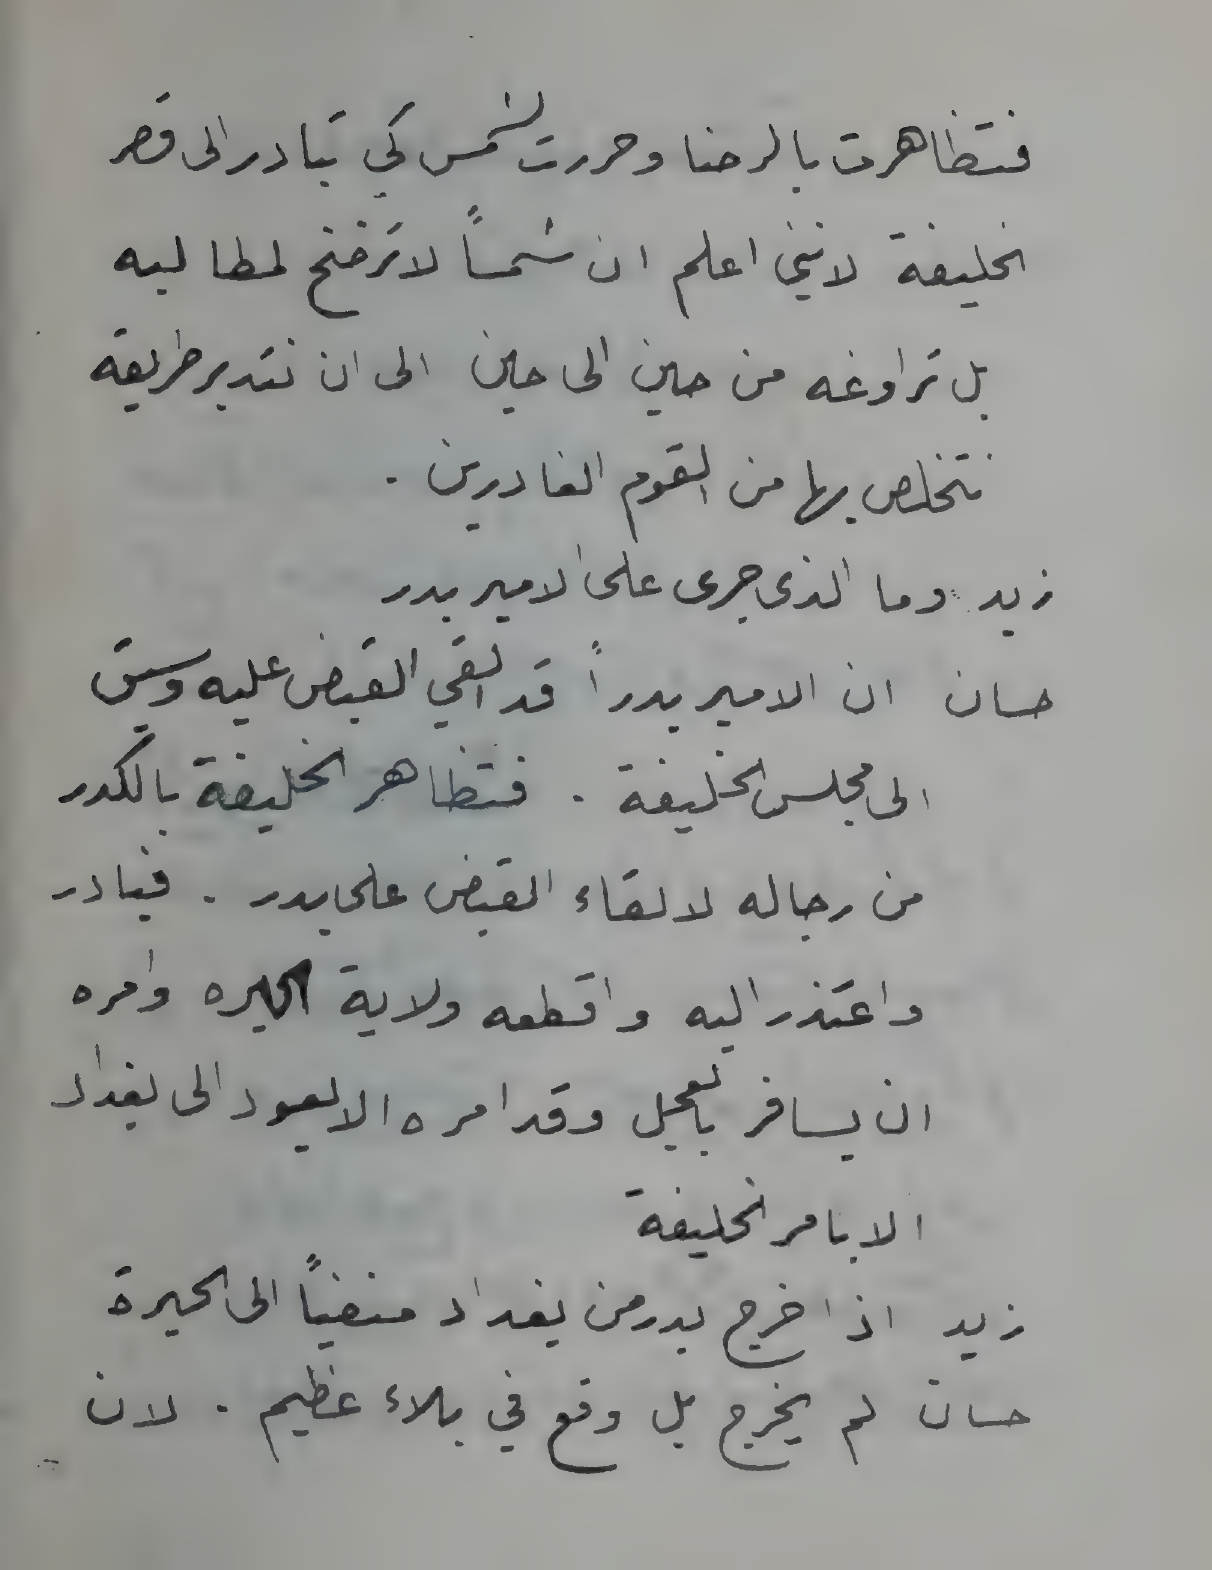 فتظاهرت بالرضا وحررت لشمس كي تبادر الى قصر
الخليفة لانني اعلم ان شمساً لا ترضخ لمطاليبه
بل تراوغه من حين الى حين الى ان نتدبر طريقة
نتخلص بها من القوم الغادرين .
زيد وما الذى جرى على الامير بدر
حسان ان الامير بدراً قد القي القبض عليه وسيق
الى مجلس الخليفة . فتظاهر الخليفة بالكدر
من رجاله لالقاء القبض على بدر . فبادر
واعتذر اليه واقطعه ولاية الحيره وامره
ان يسافر بالعجل وقد امره الا يعود الى بغداد
الا بامر الخليفة
زيد اذا خرج بدر من بغداد منفياً الى الحيرة
حسان لم يخرج بل وقع في بلاء عظيم . لان